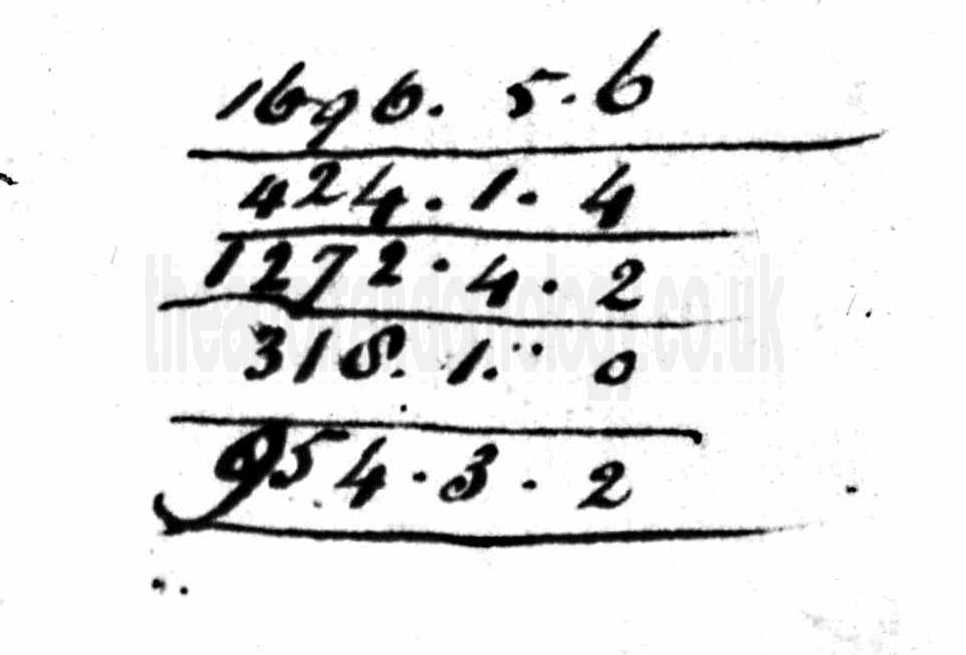 1696. 5. 6
424. 1. 4
1272. 4. 2
318. 1. 0
954. 3. 2